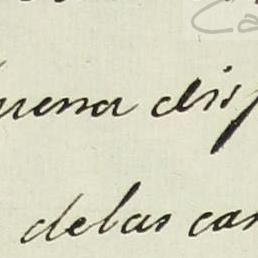 Ca
uena disp
de las cas